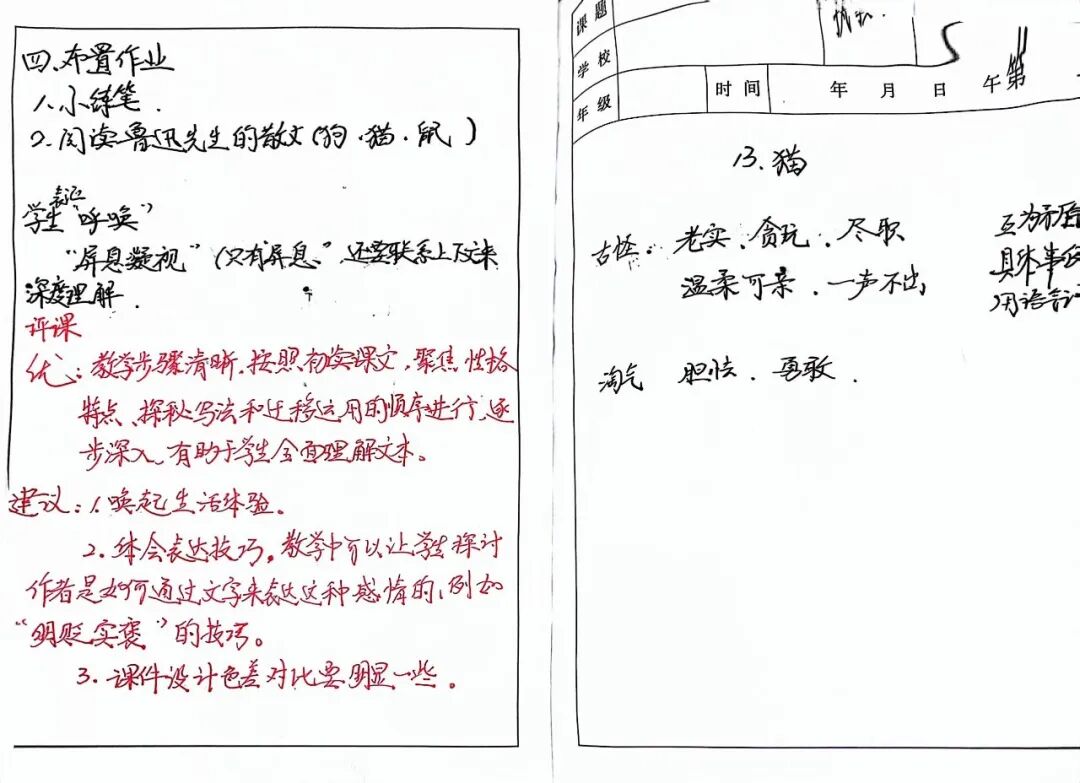 四、布置作业
1、小练笔.
2、阅读鲁迅先生的散文(狗·猫·鼠)
表述
学生“呼唤”
“屏息凝视”(只有屏息”还要联系上下文来
深度理解.
评课
优:教学步骤清晰,按照初读课文,聚焦性格
特点、探秘写法和迁移运用的顺序进行,逐
步深入,有助于学生全面理解文本。
建议:1.唤起生活体验。
2.体会表达技巧,教学中可以让学生探讨
作者是如何通过文字来表达这种感情的,例如
“明贬实褒”的技巧。
3.课件设计色差对比要明显一些。
课题
学校
年级
时间 年 月 日 午第
13.猫
古怪:老实、贪玩、尽职
温柔可亲、一声不出
互为矛盾
具体事
用语言
淘气 胆怯、勇敢.